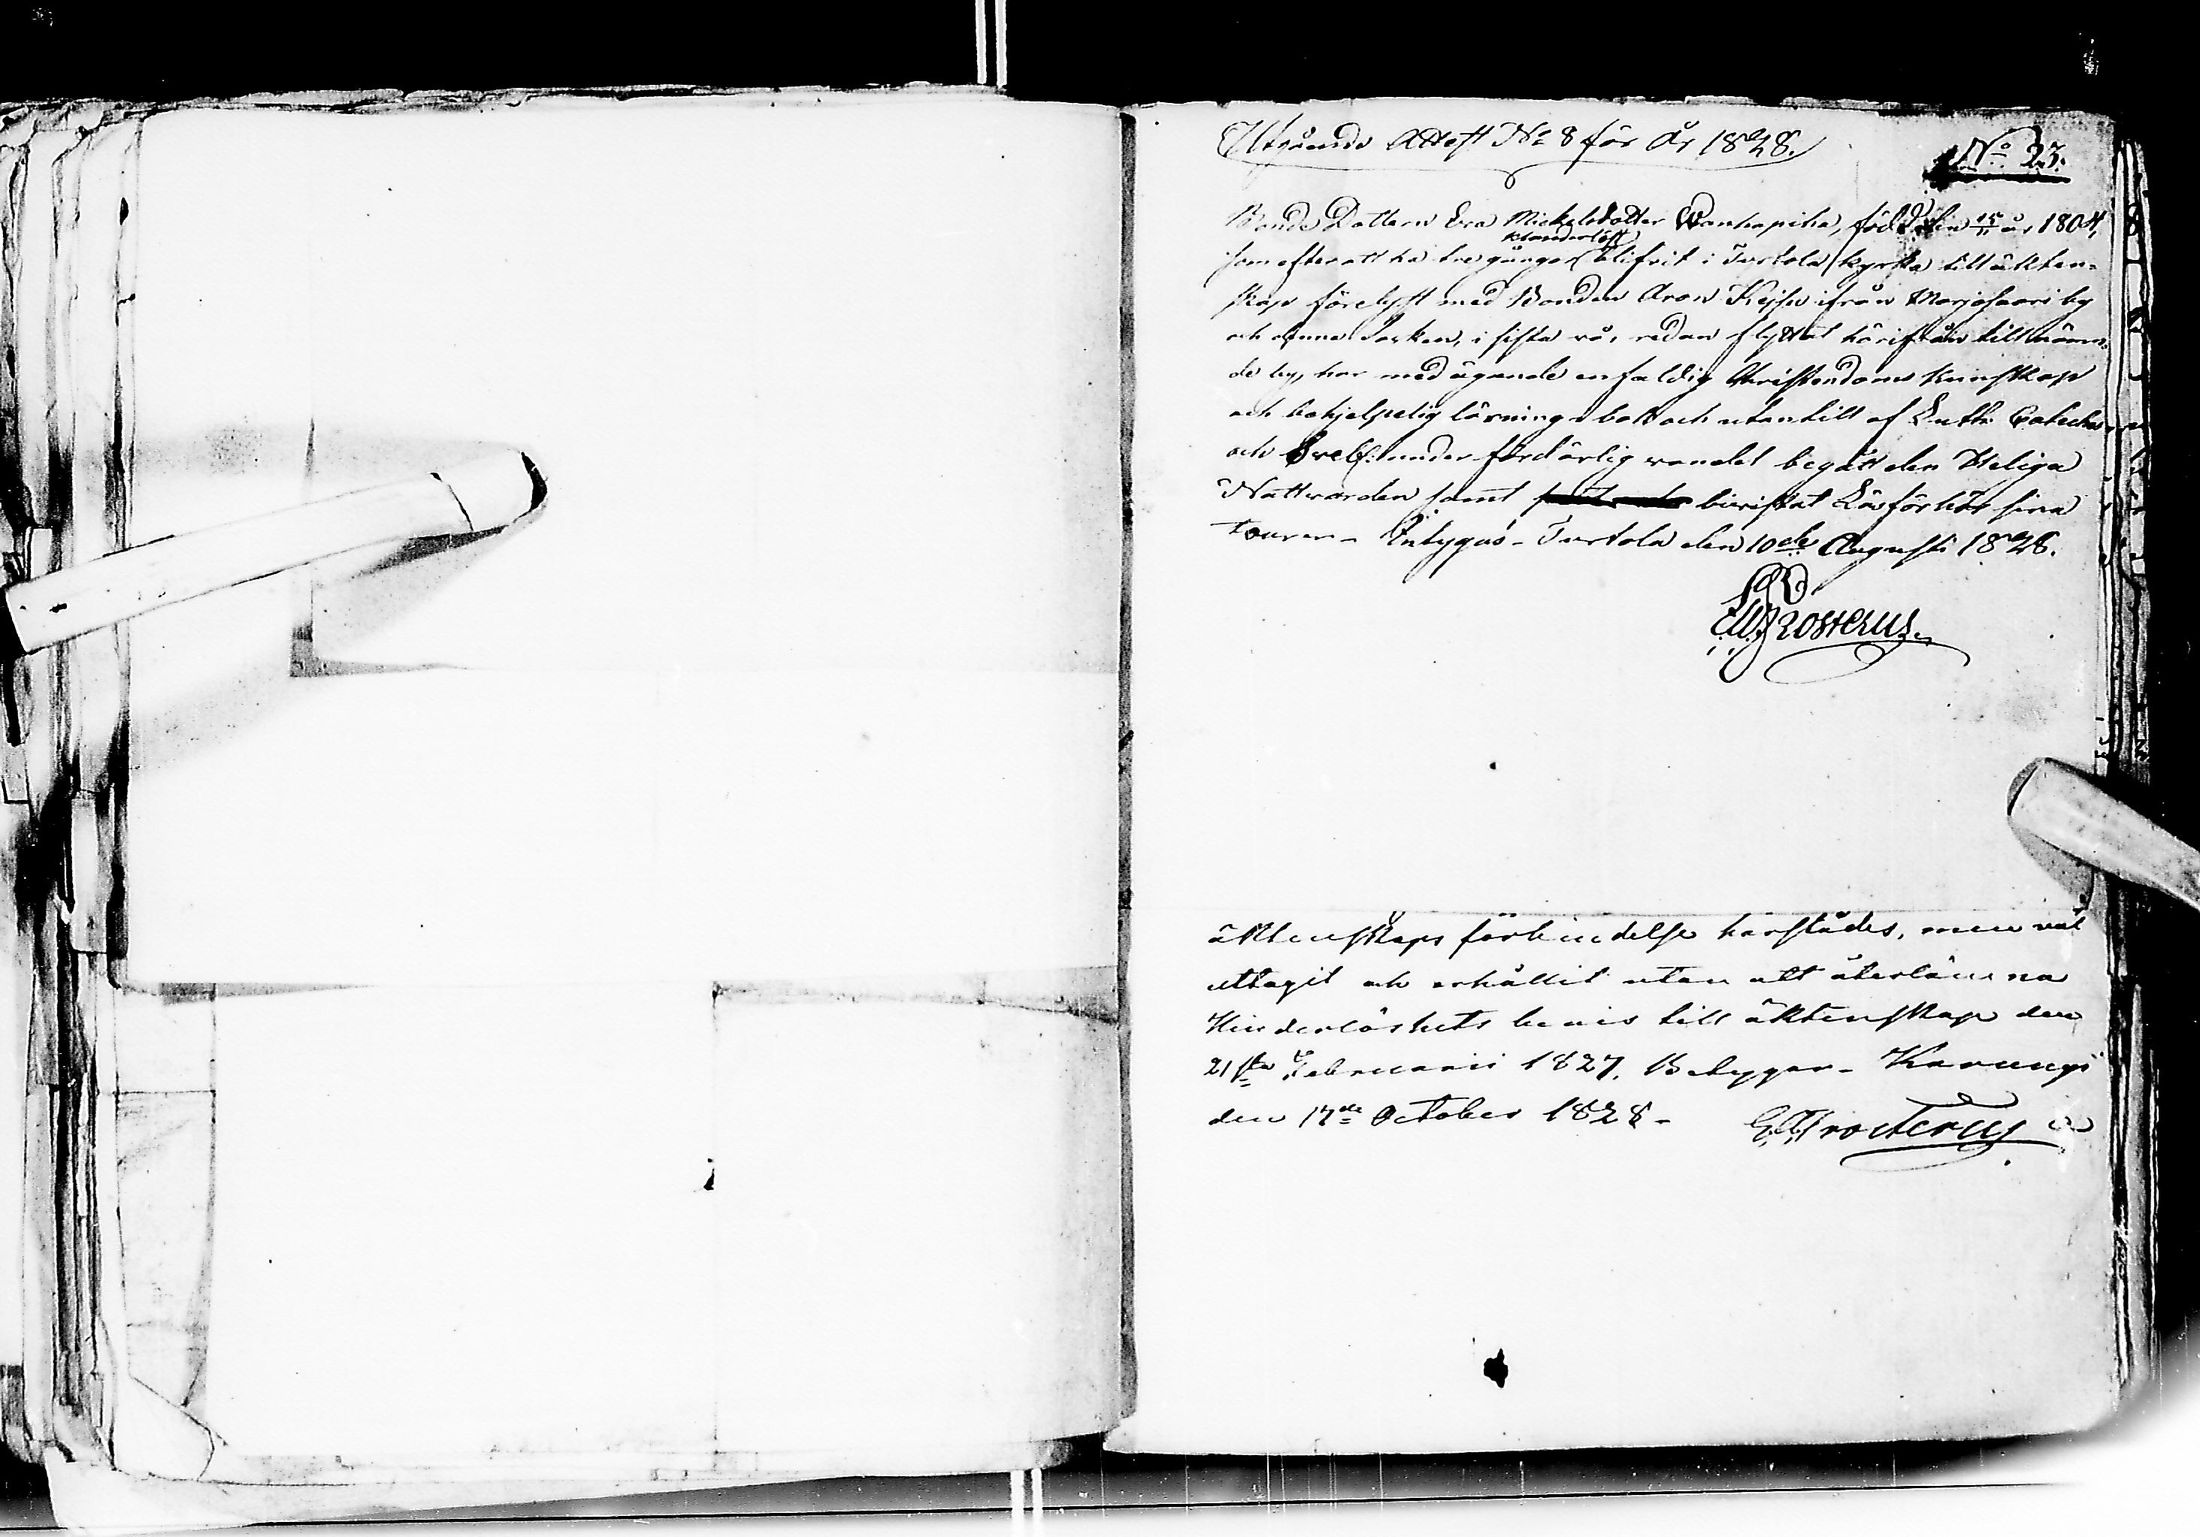 Utgående Attest No 8 för År 1828.
No 23.
Bonde Dottern Eva Mickelsdotter Wanhapiha, född den 15/11 år 1804,
klanderlöst
som efter att ha tre gångor blifvit i Turtola kyrka till äkten-
skap förelyst med Bonden Aron Kejsu ifrån Marjosaari by
och denna Socken, i sista vår, redan flyttat härifrån till näm-
de by, har med ägande enfaldig Christendoms kunskap
och behjelpelig läsning i bok och utantill af Luth: Cateches
och Svebelii under ärlig vandel begått den Heliga
Nattvarden samt bevistat Läsförhör sina
tourer - Intygas - Turtola den 10de Augusti 1828.
Frosterus.
äktenskaps förbindelse härstädes, men väl
uttagit och erhållit utan att återlämna
Hinderlöshets bevis till äktenskap den
21sta Februarii 1827, Betygar - Karungi
den 17de October 1828 - Frosterus